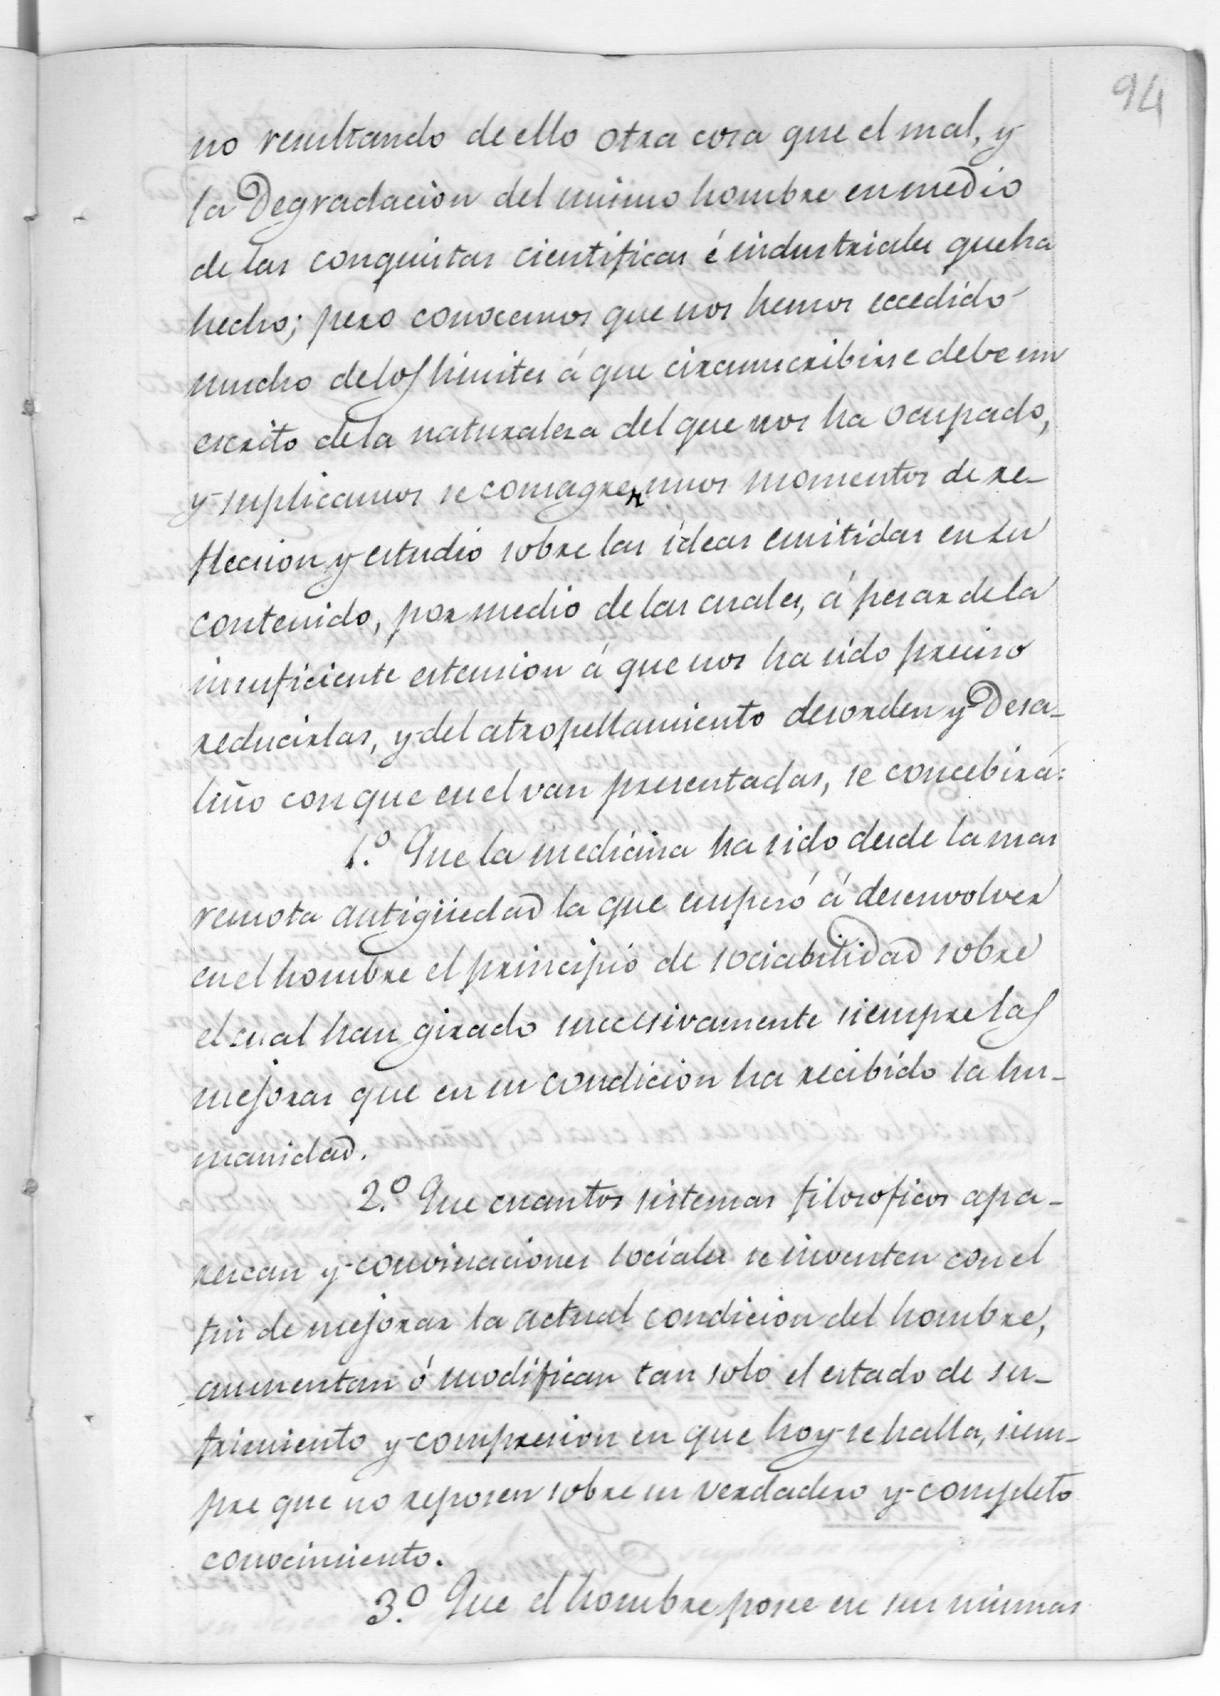 94
no resultando de ello otra cosa que el mal, y
la Degradacion del mismo hombre en medio
de las conquistas cientificas é industriales que ha
hecho; pero conocemos que nos hemos eccedido
mucho de los limites á que circunscribirse debe un
escrito de la naturaleza del que nos ha ocupado,
y suplicamos se consagren unos momentos de re-
flecsion y estudio sobre las ideas emitidas en su
contenido, por medio de las cuales, á pesar de la
insuficiente estension á que nos ha sido preciso
reducirlas, y del atropellamiento desorden y Desa-
liño con que en el van presentadas, se concebirá:
1.º Que la medicina ha sido desde la mas
remota antigüedad la que empesó á desenvolver
en el hombre el principio de sociabilidad sobre
el cual han girado succesivamente siempre las
mejoras que en su condicion ha recibido la hu-
manidad.
2.º Que cuantos sistemas filosoficos apa-
rescan y convinaciones sociales se inventen con el
fin de mejorar la actual condicion del hombre,
aumentan ó modifican tan solo el estado de su-
frimiento y compresion en que hoy se halla, siem-
pre que no reposen sobre su verdadero y completo
conocimiento.
3.º Que el hombre posee en sus mismas